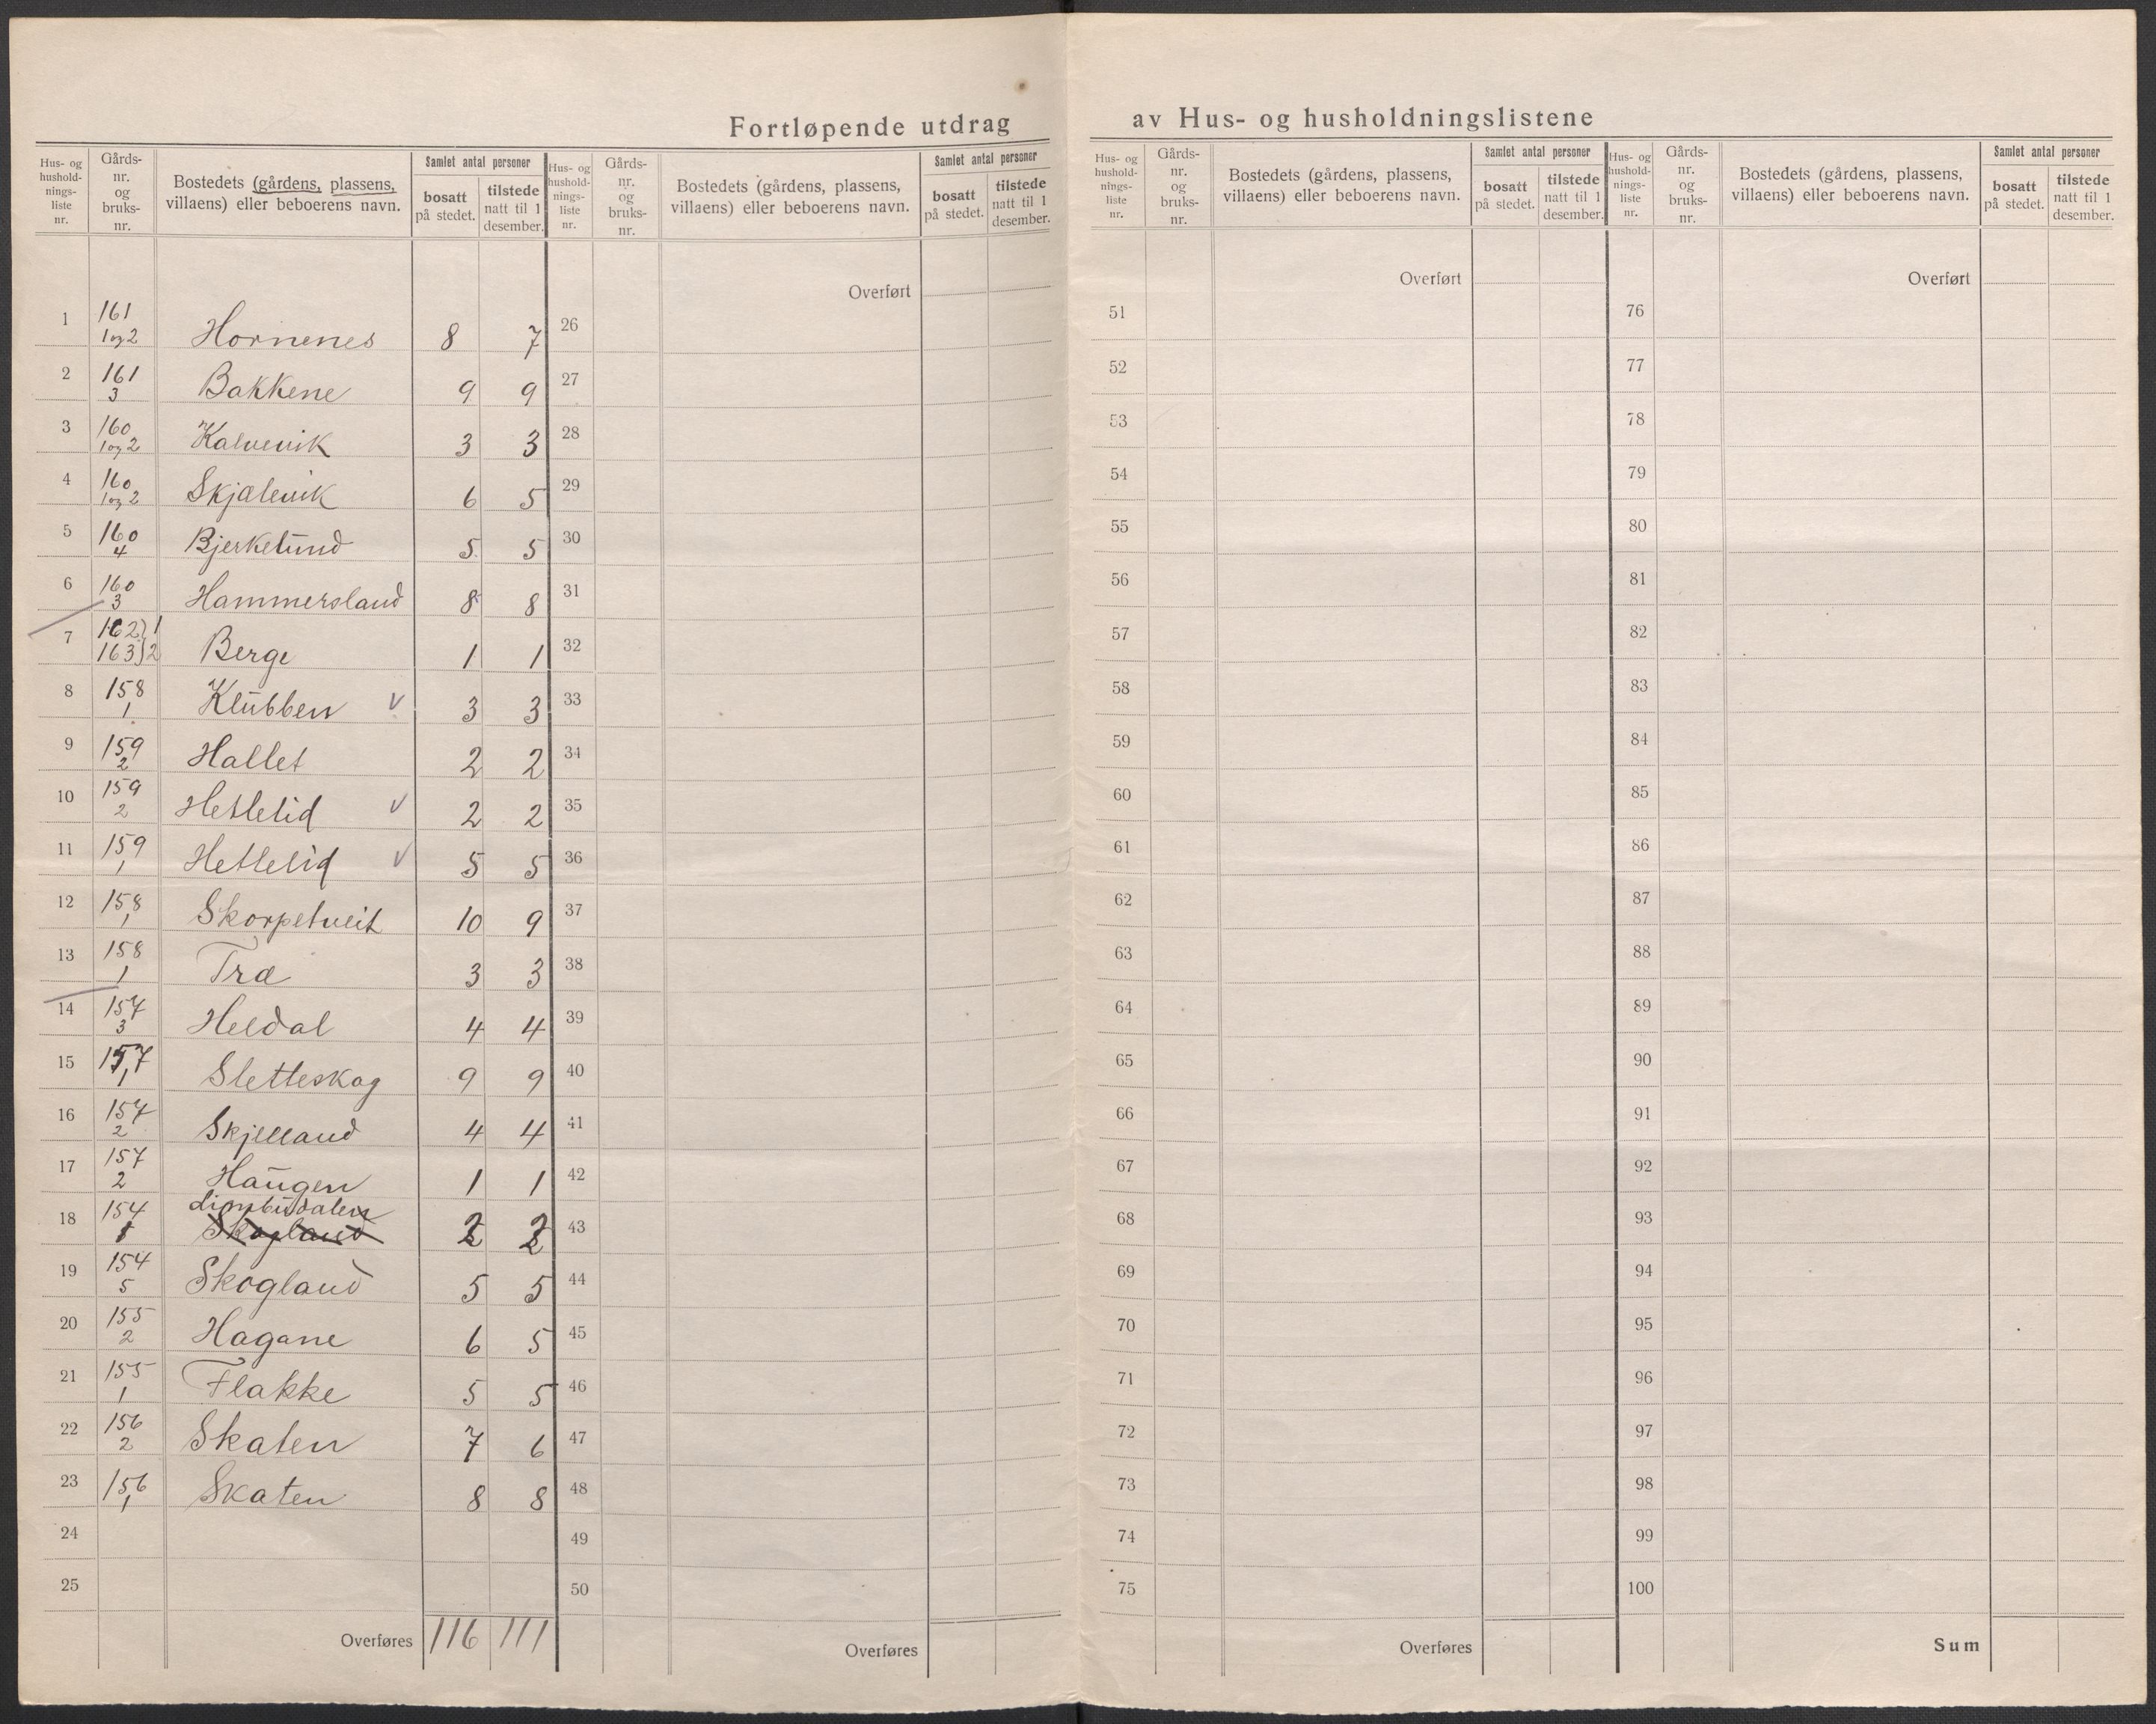 Fortløpende utdrag av Hus- og husholdningslistene
Hus- og husholdnings-liste nr. | Gårds-nr. og bruks-nr. | Bostedets (gårdens, plassens, villaens) eller beboerens navn. | Samlet antal personer bosatt på stedet. | tilstede natt til 1 desember.
1 | 161 1 og 2 | Hornenes | 8 | 7
2 | 161 3 | Bakkene | 9 | 9
3 | 160 1 og 2 | Kalvevik | 3 | 3
4 | 160 1 og 2 | Skjælevik | 6 | 5
5 | 160 4 | Bjerkelund | 5 | 5
6 | 160 3 | Hammersland | 8 | 8
7 | 162) 1 163) 2 | Berge | 1 | 1
8 | 158 1 | Klubben V | 3 | 3
9 | 159 2 | Hallet | 2 | 2
10 | 159 2 | Hetlelid V | 2 | 2
11 | 159 1 | Hetlelid V | 5 | 5
12 | 158 1 | Skorpetveit | 10 | 9
13 | 158 1 | Træ | 3 | 3
14 | 157 3 | Heldal | 4 | 4
15 | 157 1 | Sletteskog | 9 | 9
16 | 157 2 | Skjelland | 4 | 4
17 | 157 2 | Haugen | 1 | 1
18 | 154 | Skogland | 2 | 2
19 | 154 5 | Skogland | 5 | 5
20 | 155 2 | Hagane | 6 | 5
21 | 155 1 | Flakke | 5 | 5
22 | 156 2 | Skaten | 7 | 6
23 | 156 1 | Skaten | 8 | 8
24
25
Overføres | 116 | 111
Hus- og husholdnings-liste nr. | Gårds-nr. og bruks-nr. | Bostedets (gårdens, plassens, villaens) eller beboerens navn. | Samlet antal personer bosatt på stedet. | tilstede natt til 1 desember.
Overført
26
27
28
29
30
31
32
33
34
35
36
37
38
39
40
41
42
43
44
45
46
47
48
49
50
Overføres
Hus- og husholdnings-liste nr. | Gårds-nr. og bruks-nr. | Bostedets (gårdens, plassens, villaens) eller beboerens navn. | Samlet antal personer bosatt på stedet. | tilstede natt til 1 desember.
Overført
51
52
53
54
55
56
57
58
59
60
61
62
63
64
65
66
67
68
69
70
71
72
73
74
75
Overføres
Hus- og husholdnings-liste nr. | Gårds-nr. og bruks-nr. | Bostedets (gårdens, plassens, villaens) eller beboerens navn. | Samlet antal personer bosatt på stedet. | tilstede natt til 1 desember.
Overført
76
77
78
79
80
81
82
83
84
85
86
87
88
89
90
91
92
93
94
95
96
97
98
99
100
Sum